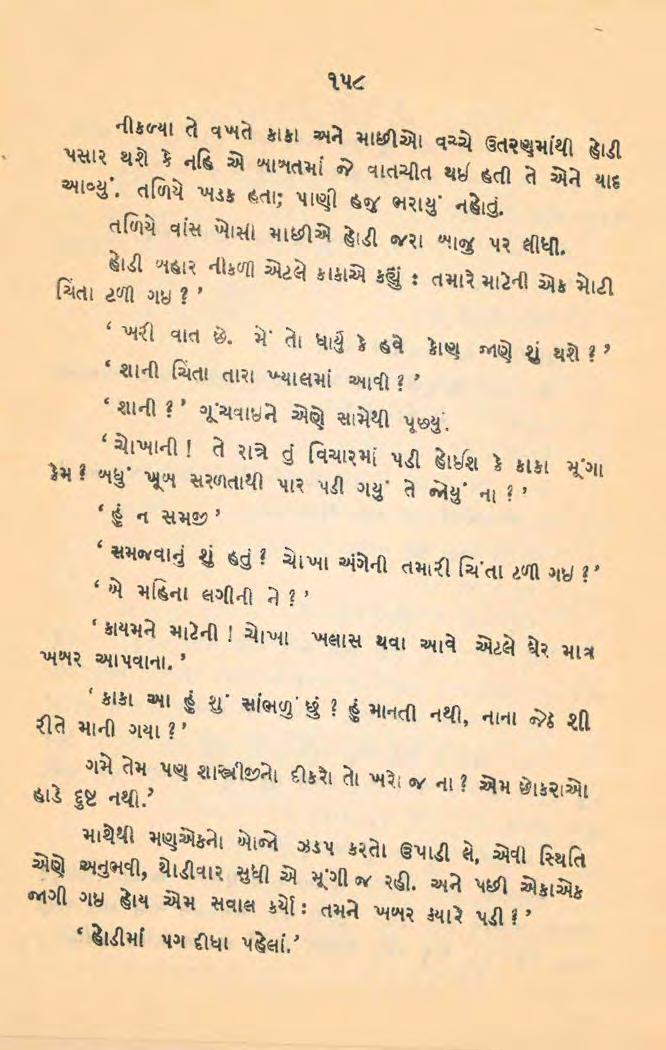 ૧૫૮
નીકળ્યા તે વખતે કાકા અને માછીઓ વચ્ચે ઉતરણમાંથી હોડી
પસાર થશે કે નહિ એ બાબતમાં જે વાતચીત થઈ હતી તે એને યાદ
આવ્યું. તળિયે ખડક હતા; પાણી હજુ ભરાયું નહોતું.
તળિયે વાંસ ખોસી માછીએ હોડી જરા બાજુ પર લીધી.
હોડી બહાર નીકળી એટલે કાકાએ કહ્યું : તમારે માટેની એક મોટી
ચિંતા ટળી ગઇ ? ’
‘ ખરી વાત છે. મેં તો ધાર્યું કે હવે કોણ જાણે શું થશે ? ’
‘ શાની ચિંતા તારા ખ્યાલમાં આવી ? ’
‘ શાની ? ’ ગૂંચવાઇને એણે સામેથી પૂછ્યું.
‘ ચોખાની ! તે રાત્રે તું વિચારમાં પડી હોઈશ કે કાકા મૂંગા
કેમ ? બધું ખૂબ સરળતાથી પાર પડી ગયું તે જોયું ના ? ’
‘ હું ન સમજી ’
‘ સમજવાનું શું હતું ? ચોખા અંગેની તમારી ચિંતા ટળી ગઇ ? ’
‘ બે મહિના લગીની ને ? ’
‘ કાયમને માટેની ! ચોખા ખલાસ થવા આવે એટલે ઘેર માત્ર
ખબર આપવાના. ’
‘ કાકા આ હું શું સાંભળું છું ? હું માનતી નથી, નાના જેઠ શી
રીતે માની ગયા ? ’
ગમે તેમ પણ શાસ્ત્રીજીનો દીકરો તો ખરો જ ના ? એમ છોકરાઓ
હાડે દુષ્ટ નથી.’
માથેથી મણએકનો બોજો ઝડપ કરતો ઉપાડી લે, એવી સ્થિતિ
એણે અનુભવી, થોડીવાર સુધી એ મૂંગી જ રહી. અને પછી એકાએક
જાગી ગઇ હોય એમ સવાલ કર્યો : તમને ખબર ક્યારે પડી ? ’
‘ હોડીમાં પગ દીધા પહેલાં.’